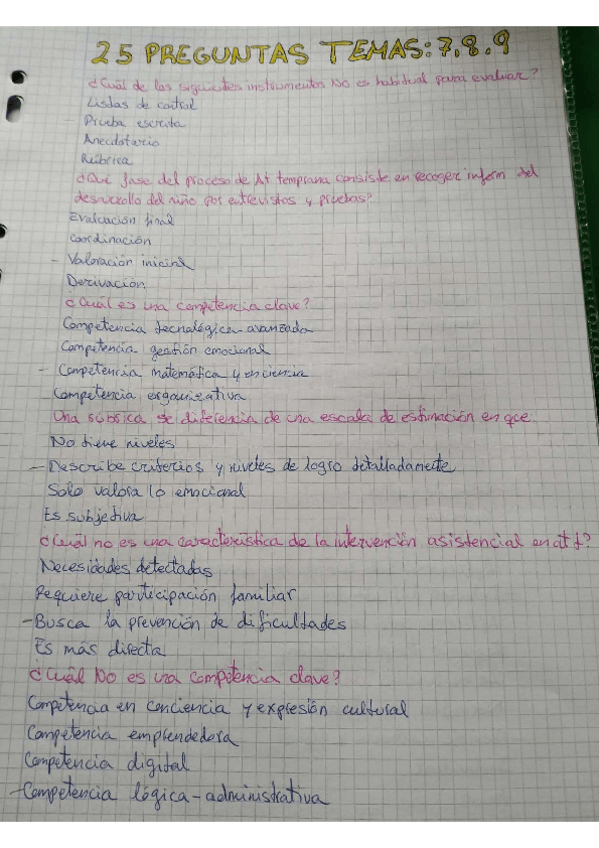 25 PREGUNTAS TEMAS: 7, 8, 9
¿Cuál de las siguientes instrumentos No es habitual para evaluar?
Listas de control
Prueba escrita
Anecdotario
Rúbrica
¿Qué fase del proceso de At temprana consiste en recoger inform del
desarrollo del niño por entrevistas y pruebas?
Evaluación final
Coordinación
- Valoración inicial
Derivación
¿Cuál es una competencia clave?
Competencia tecnológica avanzada
Competencia gestión emocional
- Competencia matemática y en ciencia
Competencia organizativa
Una rúbrica se diferencia de una escala de estimación en que
No tiene niveles
- Describe criterios y niveles de logro detalladamente
Solo valora lo emocional
Es subjetiva
¿Cuál no es una característica de la intervención asistencial en at t?
Necesidades detectadas
Requiere participación familiar
- Busca la prevención de dificultades
Es más directa
¿Cuál No es una competencia clave?
Competencia en conciencia y expresión cultural
Competencia emprendedora
Competencia digital
- Competencia lógica - administrativa